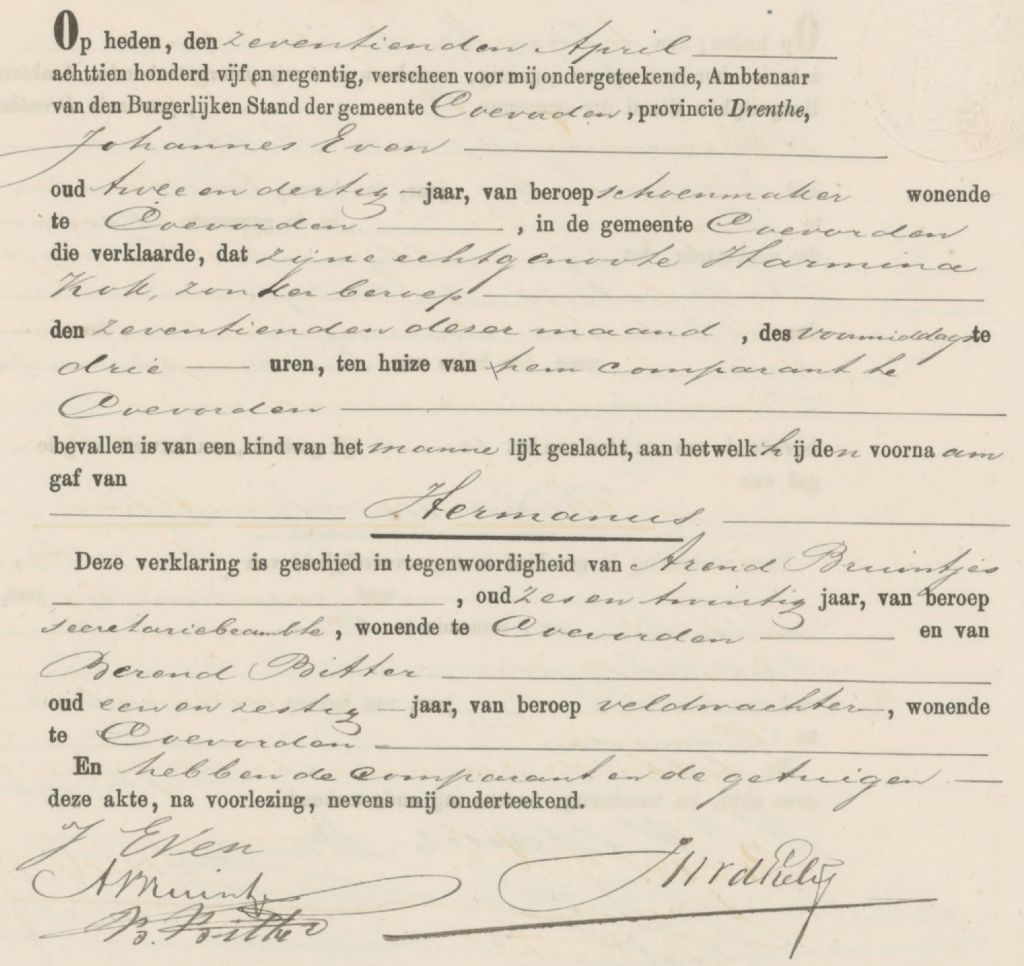 Op heden, den zeventienden April
achttien honderd vijf en negentig, verscheen voor mij ondergeteekende, Ambtenaar
van den Burgerlijken Stand der gemeente Coevorden, provincie Drenthe,
Johannes Even
oud twee en dertig jaar, van beroep schoenmaker wonende
te Coevorden, in de gemeente Coevorden
die verklaarde, dat zijne echtgenoote Harmina
Kok, zonder beroep
den zeventienden dezer maand, des voormiddags te
drie uren, ten huize van hem comparant te
Coevorden
bevallen is van een kind van het mannelijk geslacht, aan hetwelk hij den voornaam
gaf van
Hermanus
Deze verklaring is geschied in tegenwoordigheid van Arend Bruintjes
, oud zes en twintig jaar, van beroep
secretariebeambte, wonende te Coevorden en van
Berend Bitter
oud een en zestig jaar, van beroep veldwachter, wonende
te Coevorden
En hebben de comparant en de getuigen
deze akte, na voorlezing, nevens mij onderteekend.
J Even
ABruintjes
B. Bitter